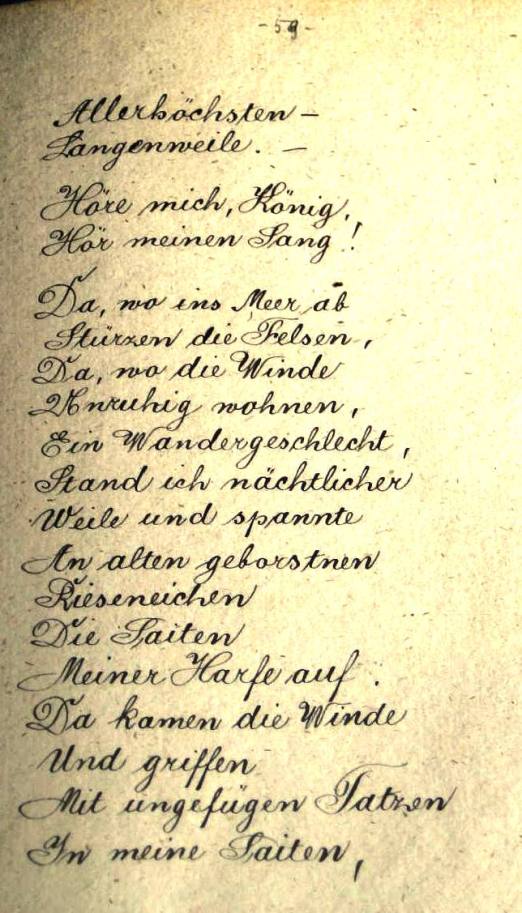 - 59 -
Allerhöchsten –
Langenweile. –
Höre mich, König,
Hör meinen Sang!
Da, wo ins Meer ab
Stürzen die Felsen,
Da, wo die Winde
Unruhig wohnen,
Ein Wandergeschlecht,
Stand ich nächtlicher
Weile und spannte
An alten geborstnen
Rieseneichen
Die Saiten
Meiner Harfe auf.
Da kamen die Winde
Und griffen
Mit ungefügen Tatzen
In meine Saiten,